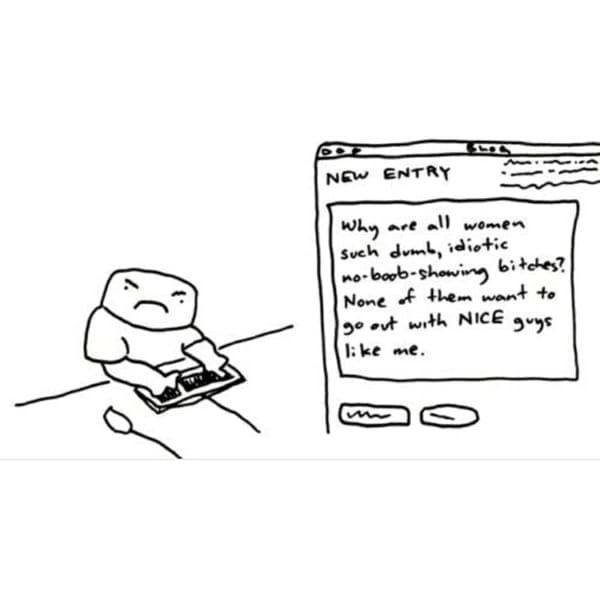 BLOG
NEW ENTRY
Why are all women
such dumb, idiotic
no-boob-showing bitches?
None of them want to
go out with NICE guys
like me.